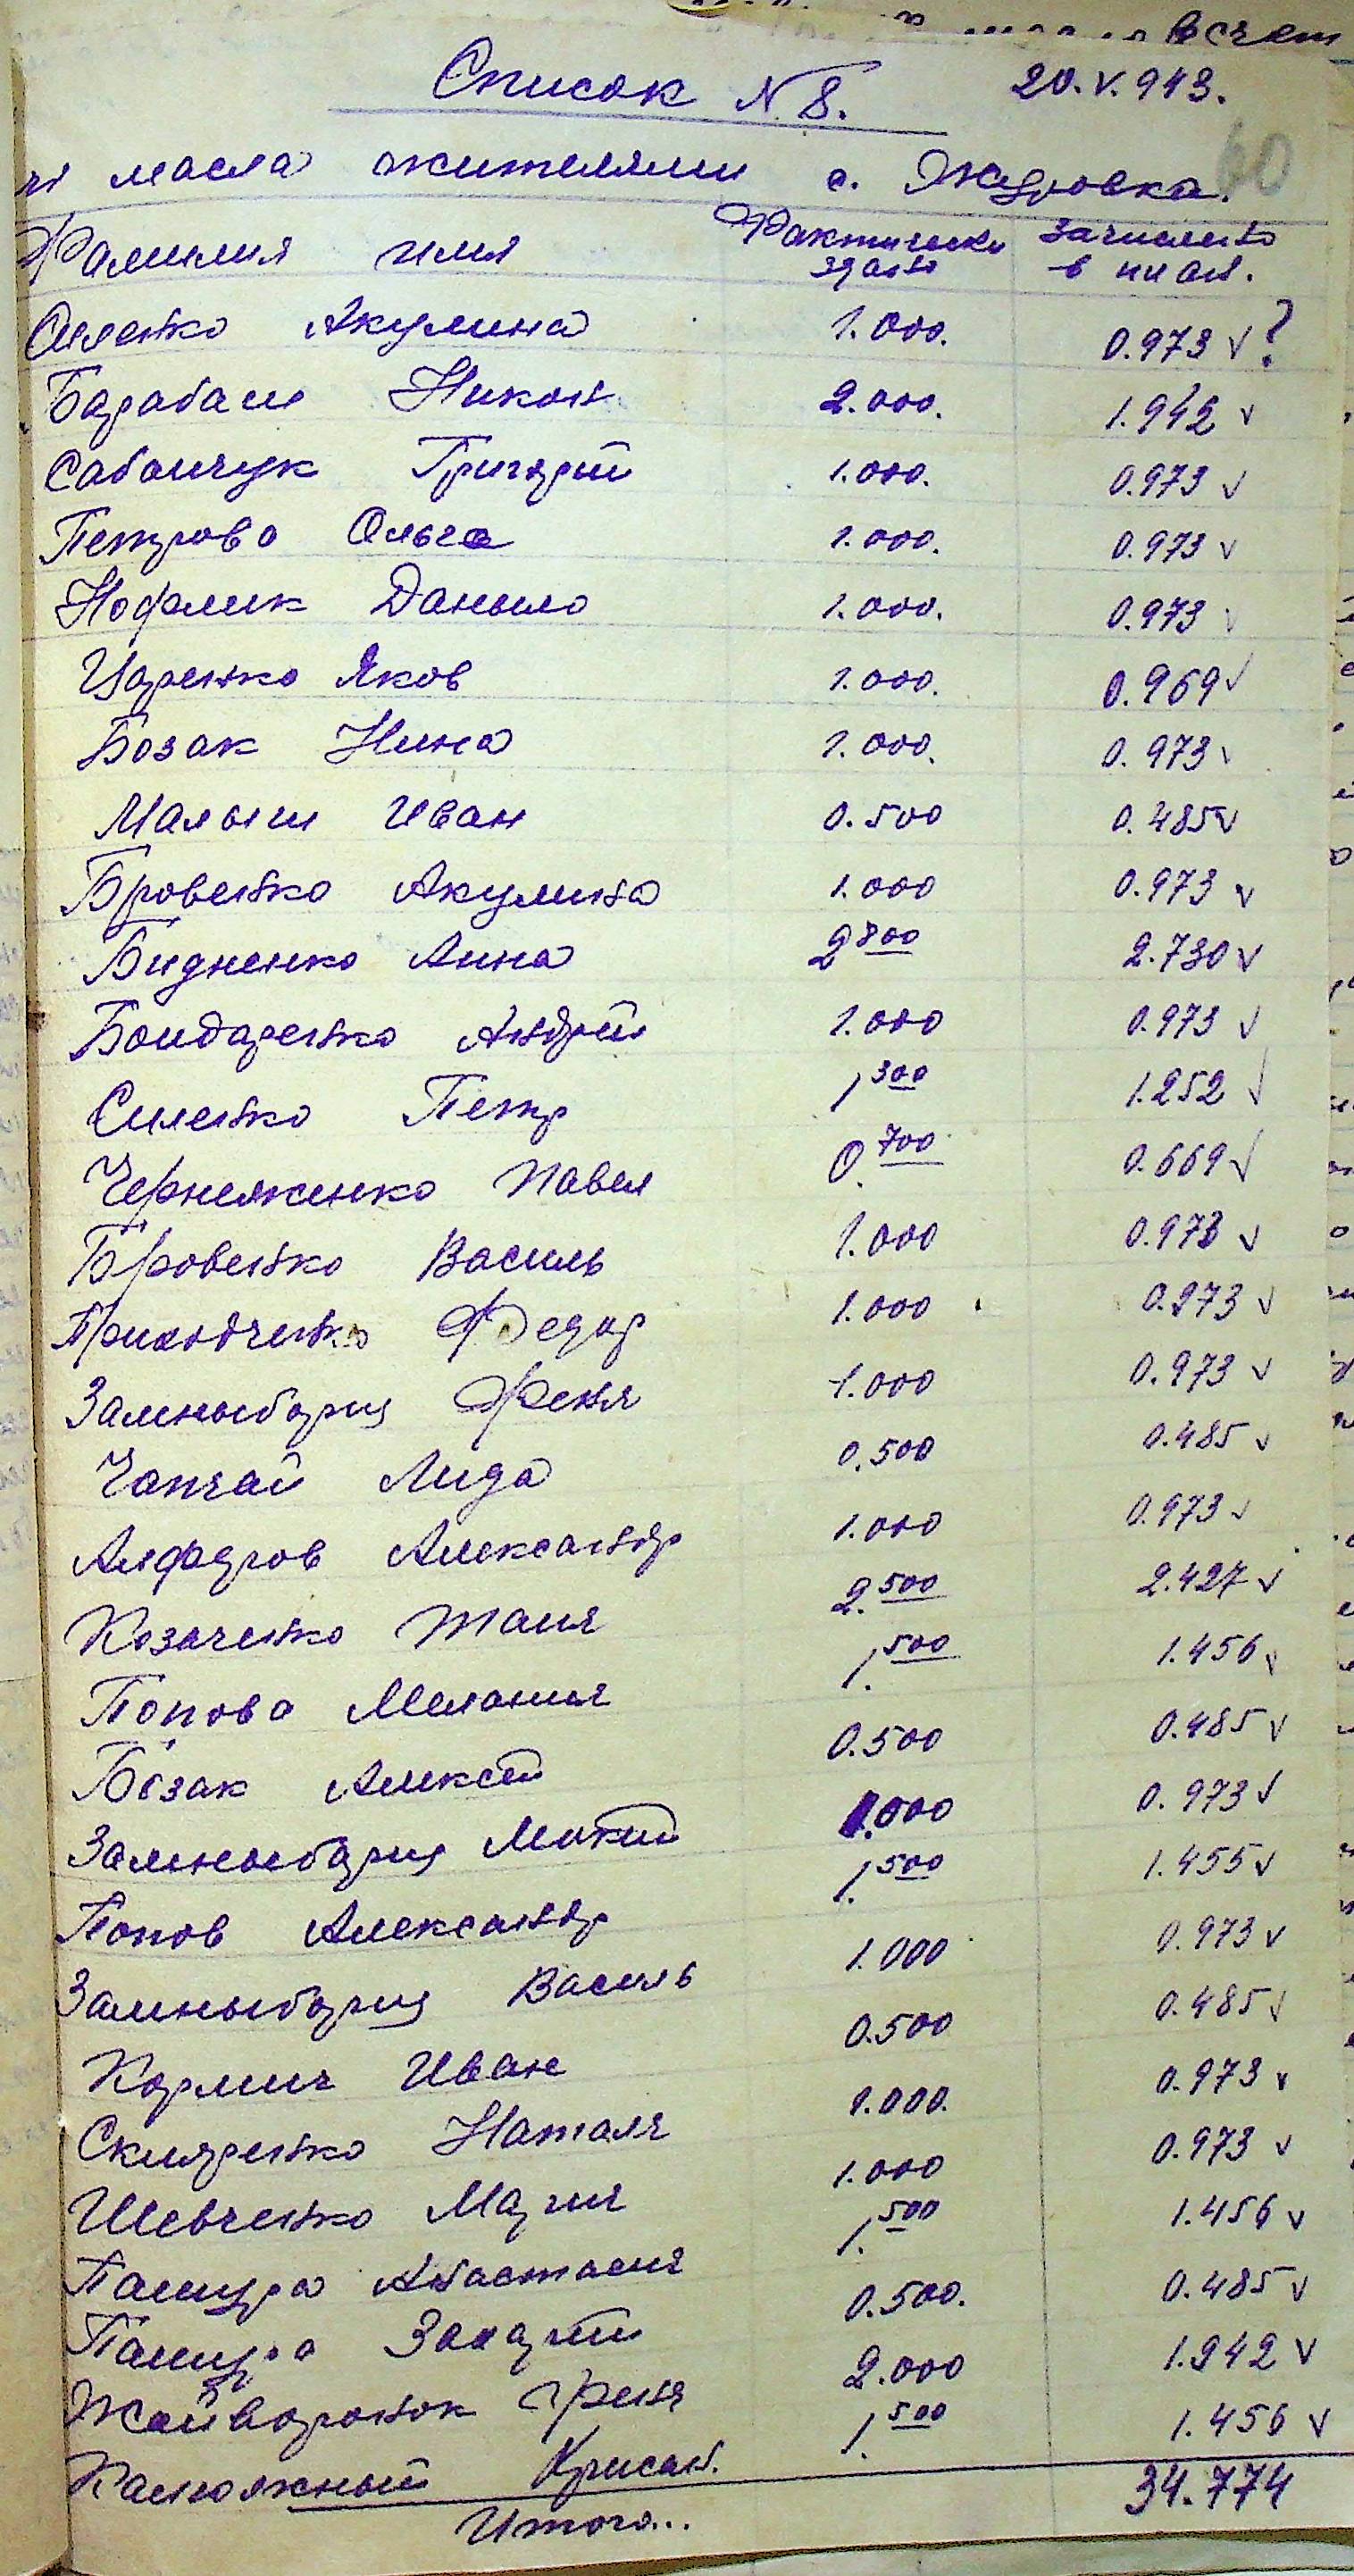 в счет
Список N 8. 20.V.943.
60
масла жителями с. Журовка.
Фамилия имя Фактически сдано Зачислено в план.
Силенко Акулина 1.000. 0.973 v ?
Барабаш Никон 2.000. 1.942 v
Сабанчук Григорий 1.000. 0.973 v
Петрова Ольга 1.000. 0.973 v
Данило 1.000. 0.973 v
Царенко Яков 1.000. 0.969 v
Бозак Нина 1.000. 0.973 v
Малыш Иван 0.500 0.485 v
Бровенко Акулина 1.000 0.973 v
Бидненко Анна 2 800 2.730 v
Бондаренко Андрей 1.000 0.973 v
Силенко Петр 1 300 1.252 v
Павел 0.700 0.669 v
Бровенко Василь 1.000 0.973 v
Приходченко Федор 1.000 0.973 v
Замныборщ Феня 1.000 0.973 v
Чапчай Лида 0.500 0.485 v
Алфаров Александр 1.000 0.973 v
Козаченко Таня 2.500 2.427 v
Попова Мелания 1.500 1.456 v
Бозак Алексей 0.500 0.485 v
Замныборщ Мокий 1.000 0.973 v
Попов Александр 1.500 1.455 v
Замныборщ Василь 1.000 0.973 v
Кармич Иван 0.500 0.485 v
Скляренко Наталя 1.000. 0.973 v
Шевченко Мария 1.000 0.973 v
Пашура Анастасия 1.500 1.456 v
Пашура Захарий 0.500. 0.485 v
Жайворонок Ореня 2.000 1.942 v
Калюжный Крисан. 1.500 1.456 v
Итого... 34.774